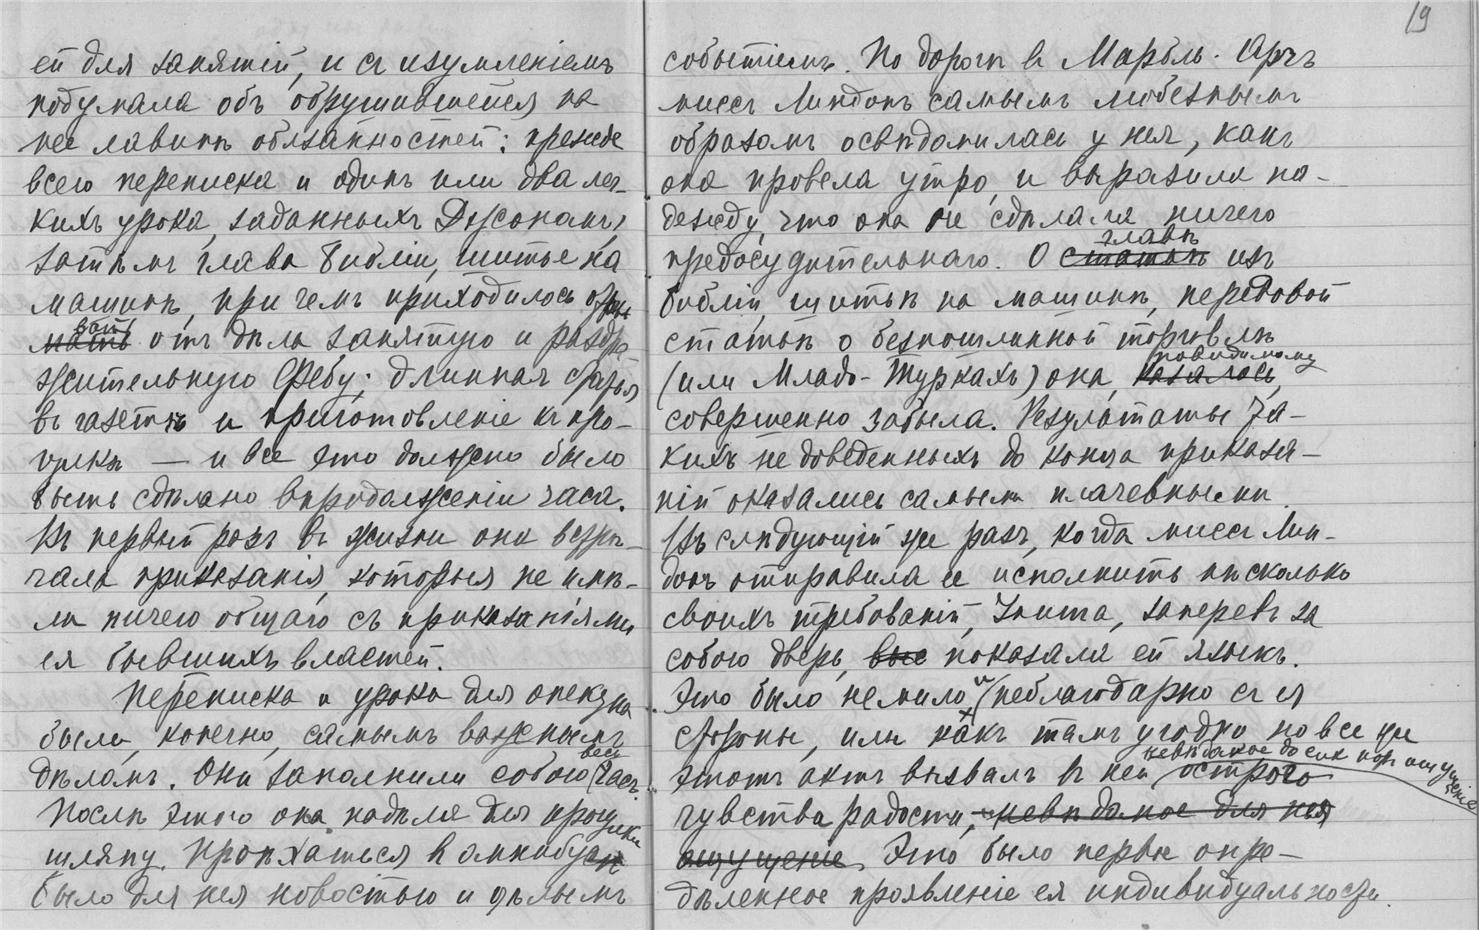 ей для занятій, и съ изумленіемъ
подумала объ обрушившейся на
нее лавинѣ обязанностей: прежде
всего переписка и одинъ или два лег-
кихъ урока, заданныхъ Джсонамъ,
затѣмъ глава Библіи, шитье на
машинѣ, при чемъ приходилось отры-
мать вать отъ дѣла занятую и раздра-
жительную Фебу; длинная статья
въ газетѣ и приготовленіе къ про-
гулкѣ — и все это должно было
быть сдѣлано впродолженіи часа.
Въ первый разъ въ жизни она встрѣ-
чала приказанія, которыя не имѣ-
ли ничего общаго съ приказаніями
ея бывшихъ властей.
Переписка и уроки для опекуна
были, конечно, самымъ важнымъ
дѣломъ. Они заполнили собою весь часъ.
Послѣ этого она надѣла для прогулки
шляпу. Проѣхаться въ омнибусѣ
было для нея новостью и цѣлымъ
19
событіемъ. По дорогѣ въ Марбль-Арчъ
миссъ Линдонъ самымъ любезнымъ
образомъ освѣдомилась у нея, какъ
она провела утро, и выразила на-
дежду, что она не сдѣлала ничего
предосудительнаго. О статьѣ главѣ изъ
библіи, шитьѣ на машинѣ, передовой
статьѣ о безпошлинной торговлѣ
(или Младо-Туркахъ) она, казалось, повидимому
совершенно забыла. Результаты та-
кихъ не доведенныхъ до конца приказа-
ній оказались самыми плачевными.
Въ слѣдующій же разъ, когда миссъ Лин-
донъ отправила ее исполнить нѣсколько
своихъ требованій, Унита, заперевъ за
собою дверь, вые показала ей языкъ.
Это было не мило и (неблагодарно съ ея
стороны, или какъ тамъ угодно но все же
этотъ актъ вызвалъ въ ней невѣдомое до сихъ поръ ощущеніе острого
чувства радости, - невѣдомое для нея
ощущеніе. Это было первое опре-
дѣленное проявленіе ея индивидуальности.